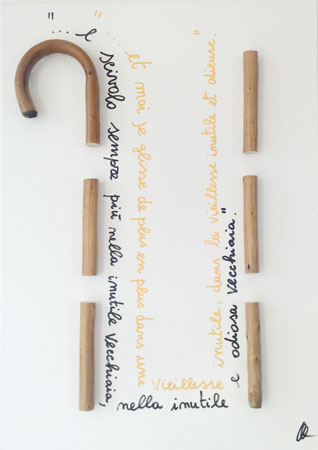 "... e scivolo sempre più nella inutile vecchiaia,
nella inutile
e odiosa vecchiaia."
"... et moi je glisse de plus en plus dans une
vieillesse
inutile, dans la vieillesse inutile et odieuse."